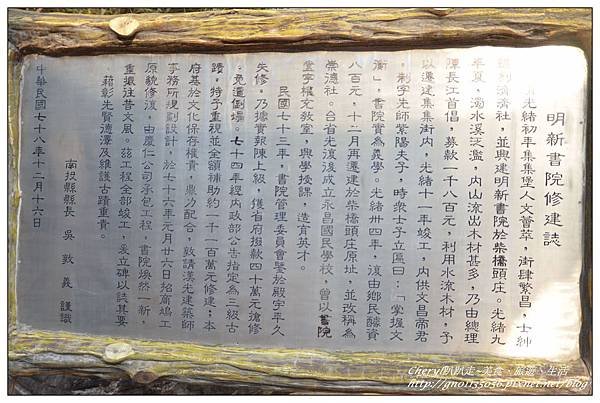 明新書院修建誌
光緒初年集集堡人文薈萃，街肆繁昌，士紳
濟濟社，並興建明新書院於柴橋頭庄。光緒九
年夏，濁水溪泛濫，內山流出木材甚多，乃由總理
陳長江首倡，募款一千八百元，利用水流木材，予
以遷建集集街內，光緒十一年竣工，內供文昌帝君
、制字先師紫陽夫子，時眾士子立匾曰：「掌握文
衡」，書院實為義學。光緒卅四年，復由鄉民醵資
八百元，十二月再遷建於柴橋頭庄原址，並改稱為
崇德社。台省光復後成立永昌國民學校，曾以書院
堂宇權充教室，興學授課，造育英才。
民國七十三年，書院管理委員會鑒於殿宇年久
失修。乃據實報陳上級，獲省府撥款四十萬元搶修
，免遭倒塌。七十四年經內政部公告指定為三級古
蹟，特予重視並全額補助約一千一百萬元修建；本
府基於文化保存權責，鼎力配合，敦請漢光建築師
事務所規劃設計，於七十六年元月廿六日招商鳩工
原貌修復，由慶仁公司承包工程，書院煥然一新，
重振往昔文風。茲工程全部竣工，爰立碑以誌其要
，藉彰先賢德澤及維護古蹟重責。
南投縣縣長 吳敦義 謹識
中華民國七十八年十二月十六日
Cheryl趴趴走~美食、旅遊、生活
http://gno1135036.pixnet.net/blog